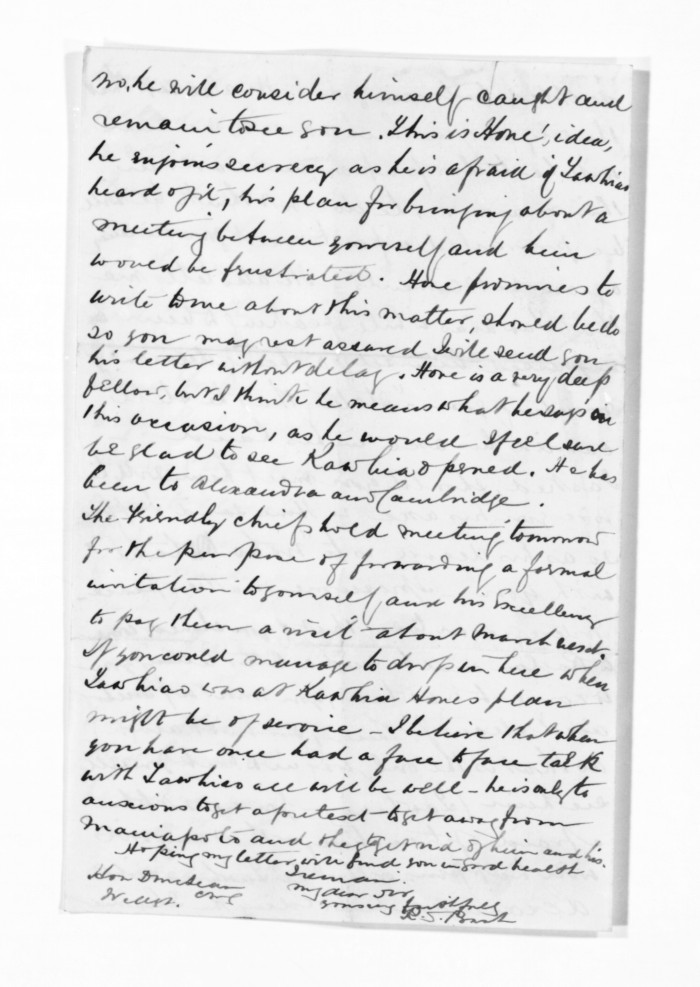 so, he will consider himself caught and
remain to see you. This is Hone's idea,
he enjoins secrecy as he is afraid if Tawhiao
heard of it, his plan for bringing about a
meeting between yourself and him
would be frustrated. Hone promises to
write to me about this matter, should he do
so you may rest assured I will send you
his letter without delay. Hone is a very deep
fellow, but I think he means what he says on
this occasion, as he would I feel sure
be glad to see Kawhia opened. He has
been to Alexandra and Cambridge.
The Friendly chiefs hold meeting tomorrow
for the purpose of forwarding a formal
invitation to yourself and his Excellency
to pay them a visit about March next.
If you could manage to drop in here when
Tawhiao was at Kawhia Hones plan
might be of service - I believe that when
you have once had a face to face talk
with Tawhiao all will be well - he is only to
anxious to get a pretext to get away from
Maniapoto and they to get rid of him and his.
Hoping my letter will find you in good health
I remain
my dear Sir
yours very faithfully
R. S. Bush
Hon D McLean
CMG
Wellgt.